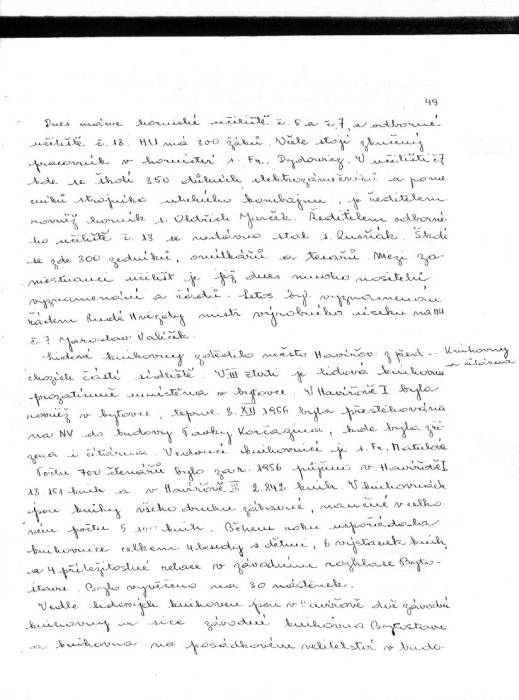 49
Dnes máme hornické učiliště č. 5 a č. 7, a odborné
učiliště č. 13. HU má 300 žáků. V čele stojí zkušený
pracovník v hornictví s. Fr. Dydowicz. V učilišti č. 7
kde se školí 350 důlních elektrozámečníků a pomo
cníků strojníka uhelného kombajnu, je ředitelem
rovněž horník s. Oldřich Jurček. Ředitelem odborné-
ho učiliště č. 13 se nedávno stal s. Rusňák. Školí
se zde 300 zedníků, omítkářů a tesařů. Mezi za
městnanci učilišť je již dnes mnoho nositelů
vyznamenání a řádů. Letos byl vyznamenán
řádem Rudé Hvězdy mistr výrobního úseku na HU
č. 7 Jaroslav Valíček.
Lidové knihovny zdědilo město Havířov z před-
Knihovny
a čítárna
chozích částí sídliště. V III čtvrti je lidová knihovna
prozatímně umístěna v bytovce. V Havířově I byla
rovněž v bytovce, teprve 8. XII 1956 byla přestěhována
na NV do budovy Pavky Korčagina, kde byla zří
zena i čítárna. Vedoucí knihovnicí je s. Fr. Matulová
Počtu 700 čtenářů bylo za r. 1956 půjčeno v Havířově I
13 151 knih a v Havířově III 2.842 knih. V knihovnách
jsou knihy všeho druhu zábavné, naučné v celko-
vém počtu 5 knih. Během roku uspořádala
knihovnice celkem 4 besedy s dětmi, 6 výstavek knih
a 4 příležitostné relace v závodním rozhlase Byto-
stavu. Bylo vyvěšeno na 30 nástěnek.
Vedle lidových knihoven jsou v Havířově dvě závodní
knihovny a sice závodní knihovna Bytostavu
a knihovna na posádkovém velitelství v budo-